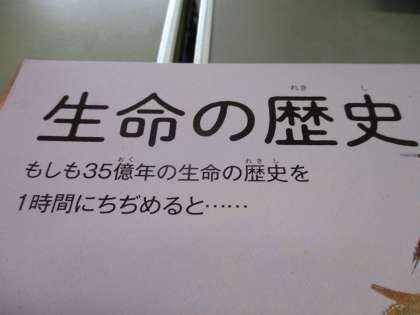 生命の歴史
もしも35億年の生命の歴史を
1時間にちぢめると……